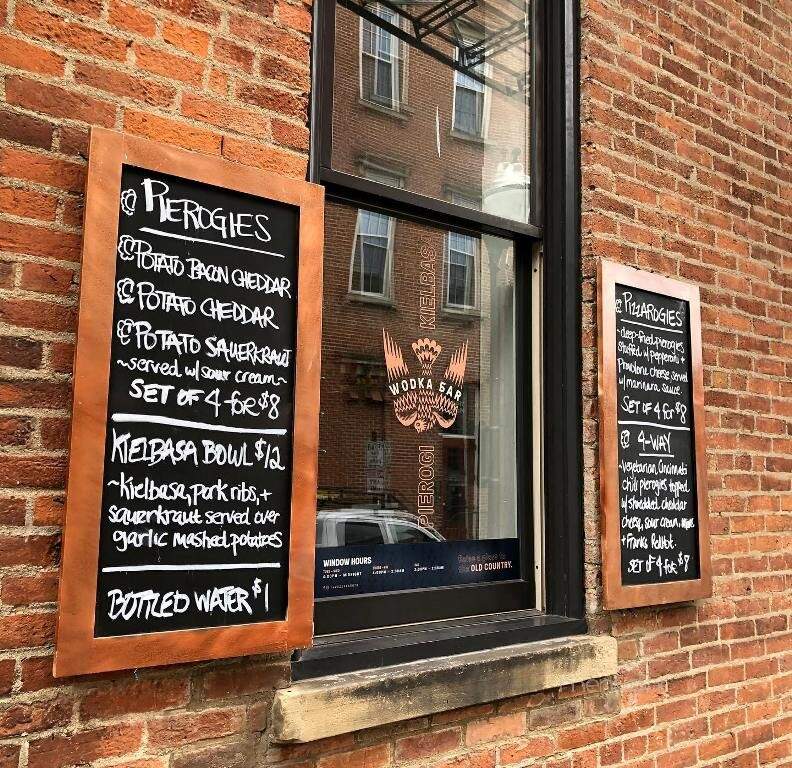 PIEROGIES
POTATO BACON CHEDDAR
POTATO CHEDDAR
POTATO SAUERKRAUT
~served w/ sour cream~
SET OF 4 for $8
KIELBASA BOWL $12
~kielbasa, pork ribs, +
sauerkraut served over
garlic mashed potatoes
BOTTLED WATER $1
KIELBASA
WODKA BAR
PIEROGI
WINDOW HOURS
OLD COUNTRY.
PIZZAROGIES
~deep-fried pierogies
stuffed w/ pepperoni +
Provolone cheese served
w/ marinara sauce.
SET OF 4 for $8
4-WAY
~vegetarian, Cincinnati
chili pierogies topped
w/ shredded cheddar
cheese, sour cream,
+ Franks RedHot.
SET of 4 for $8